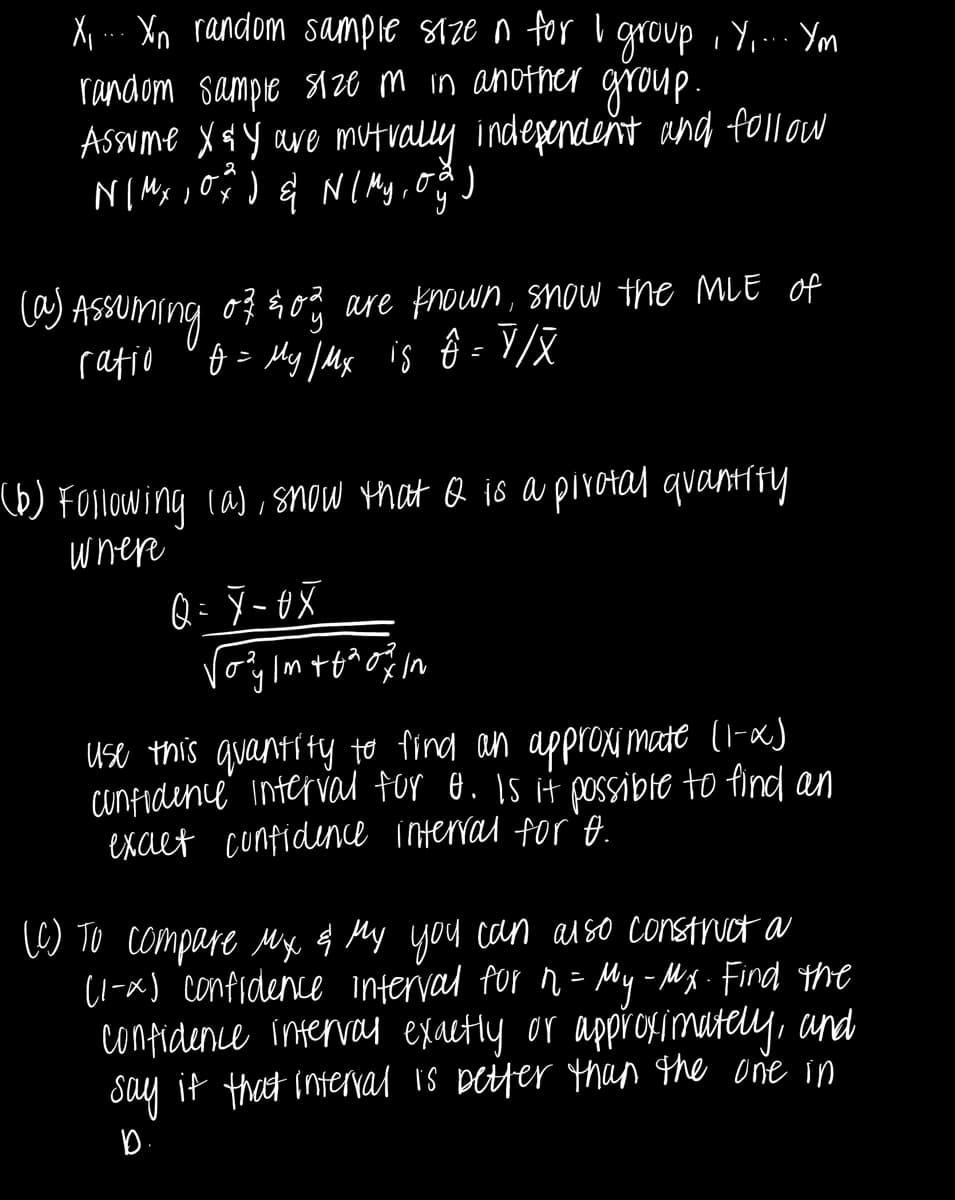 X₁ ... Xn random sample size n for 1 group, Y₁... Ym
random sample size m in another group.
Assume X & Y are mutually independent and follow
N(Mx, σ²x) & N(My, σ²y)
(a) Assuming σ²x & σ²y are known, show the MLE of
ratio θ = My/Mx is θ̂ = Ȳ/X̄
(b) Following (a), show that Q is a pivotal quantity
where
Q = Ȳ - θX̄
√σ²y/m + θ²σ²x/n
use this quantity to find an approximate (1-α)
confidence interval for θ. Is it possible to find an
exact confidence interval for θ.
(c) To compare Mx & My you can also construct a
(1-α) confidence interval for η = My - Mx. Find the
confidence interval exactly or approximately, and
say if that interval is better than the one in
b.